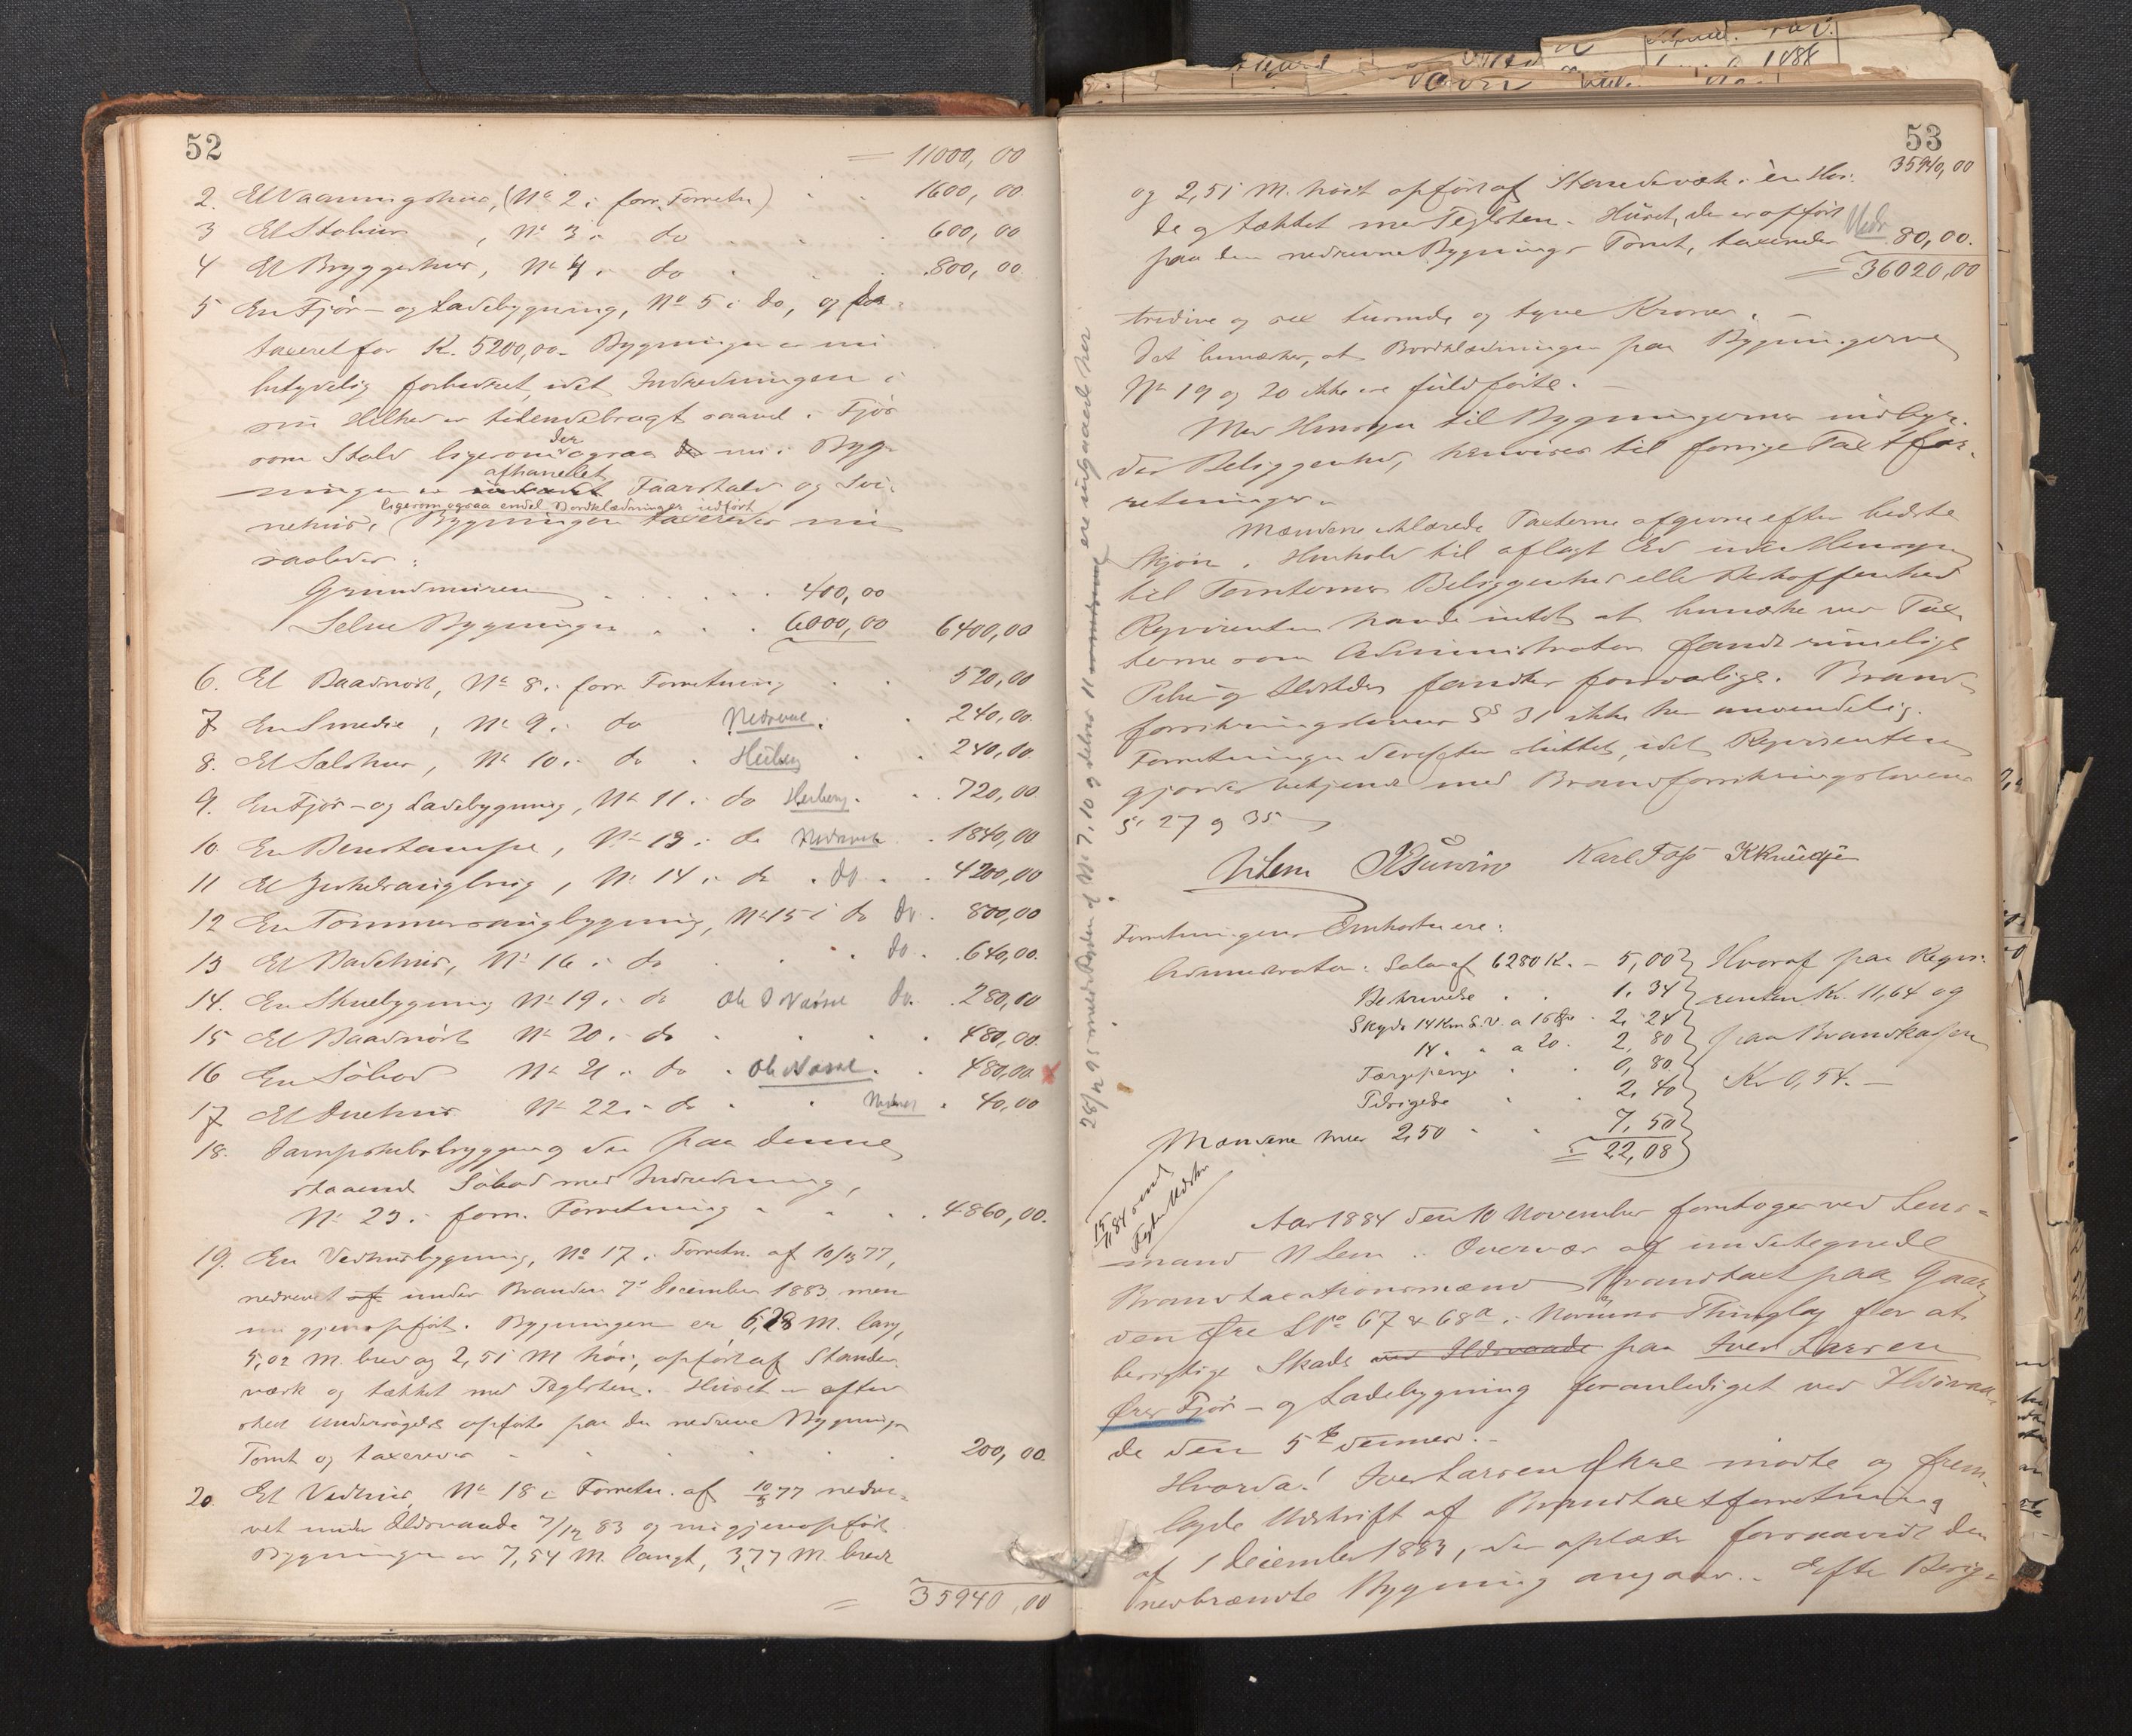 52
= 11000,00
2. Et Vaaningshus, (No 2 i forr. Forretn) . . 1600,00
3 Et Stabur, No 3 i do . . 600,00
4 Et Bryggerhus, No 4 i do . . . 800,00
5 En Fjös- og Ladebygning, No 5 i do, og da
taxeret for K. 5200,00. Bygningen er nu
betydelig forbedret, idet Indredningen i
sin Helhed er tilendebragt saavel i Fjös
som Stald ligesom der ogsaa nu i Byg-
ningen er afhandlet Faarestald og Svi-
ligesom ogsaa endel Bordklædninger udført
nehus. Bygningen taxeredes nu
saaledes:
Grundmuren . . . . . 400,00
Selve Bygningen . . . 6000,00 6400,00
6. Et Baadnøst, No 8 i forr. Forretning . . 520,00
7 En Smedie, No 9 i do Nedrevet. . 240,00
8. Et Saltehus, No 10 i do . . . 240,00
9. En Fjös- og Ladebygning, No 11 i do . . 720,00
10. En Benstampe, No 13 i do Nedrevet . 1840,00
11 Et Cirkelsaugbrug, No 14 i do . do . . 4200,00
12 En Tømmersaugbygning, No 15 i do do . 800,00
13 Et Badehus, No 16 i do . . . do . 640,00
14. En Skuebygning No 19 i do do . 280,00
15 Et Baadnøst No 20 i do . . . 480,00
16 En Söbod No 21 i do . . . 480,00
17 Et Duehus No 22 i do . . Nedrevet . 40,00
18. Dampskibsbryggen og den paa denne
staaende Söbod med Indredning,
No 23 i forr. Forretning . . . 4860,00.
19. En Vedhusbygning, No 17 i Forretn. af 10/3 77,
nedrevet under Branden 7de December 1883 men
nu gjenopført. Bygningen er 6,28 M. lang,
5,02 M. bred og 2,51 M høi, opført af Stander-
værk og tækket med Teglsten. Huset er efter
skeet Undersøgelse opført paa den nedrevne Bygnings
Tomt og taxeredes . . . . . 200,00
20. Et Vedhus No 18 i Forretn. af 10/3 77 nedre-
vet under Ildsvaade 7/12 83 og nu gjenopført
Bygningen er 7,54 M. langt, 3,77 M. bredt
= 35940,00
53
35940,00
og 2,51 M. høit opført af Standerværk i en Høi-
de og tækket med Teglsten. Huset, der er opført
paa den nedrevne Bygnings Tomt, taxeredes Nedr 80,00.
= 36020,00
tredive og sex tusinde og tyve Kroner. -
Det bemærkes, at Bordklædningen paa Bygningerne
No 19 og 20 ikke er fuldførte. -
Med Hensyn til Bygningernes indbyr-
des Beliggenhed, henvises til forrige Taxtfor-
retninger.
Mændene erklærede Taxterne afgivne efter bedste
Skjøn i Henhold til aflagt Ed uden Hensyn
til Tomternes Beliggenhed eller Beskaffenhed
Rqvirenten havde intet at bemærke ved Tax-
terne som Administrator fandt rimelige
Piber og Ildsteder fandtes forsvarlige. Brand-
forsikringslovens § 31 ikke her anvendelig.
Forretningen derefter sluttet, idet Rqvirenten
gjordes bekjendt med Brandforsikringslovens
§§ 27 og 35
N Lem Karl Foss K Knudsen
Forretningens Omkostn ere:
Administrator: Salær af 6280 K. - 5,00 Hvoraf paa Reqvi-
Beskrivelse . . 1,34 renten Kr. 11,64 og
Skyds 14 Km S.V. a 16 Øre . 2,24 paa Brandkassen
14 . . a 20 . 2,80 Kr 0,54. -
Færgepenge . . 0,80
Tilsigelse . . 2,40
Mændene hver 2,50 . . 7,50
= 22,08
Aar 1884 den 10 November foretoges ved Lens-
mand N Lem i Overvær af undertegnede
Brandtaxationsmænd Brandtaxt paa Gaar-
den Øre LNo 67 & 68a i Thinglag for at
besigtige Skade ved Ildsvaade paa Iver Larsen
Øres Fjös- og Ladebygning foranlediget ved Ildsvaa-
de den 5te dennes. -
Hvorda! Iver Larsen Øhre mødte og frem-
lagde Udskrift af Brandtaxtforretning
af 1 December 1883, der oplæstes forsaavidt den
nedbrændte Bygning angaar. Efter Besig-